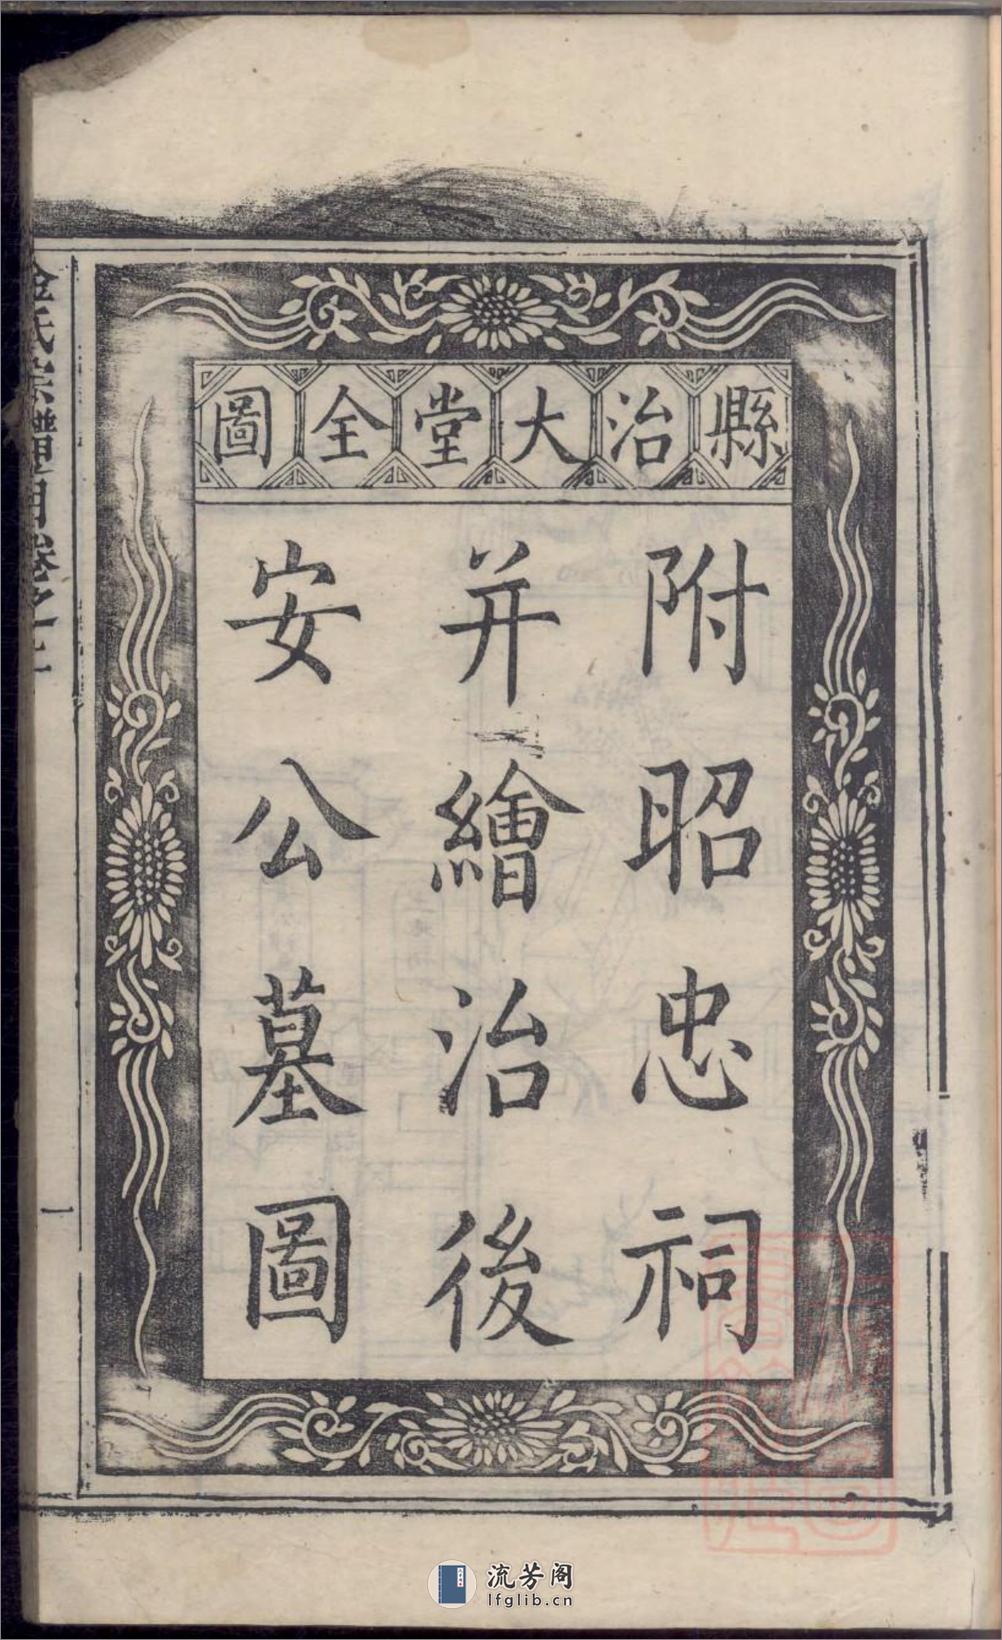 縣治大堂全圖
附昭忠祠
并繪治後
安公墓圖
一
流芳阁
lfglib.cn